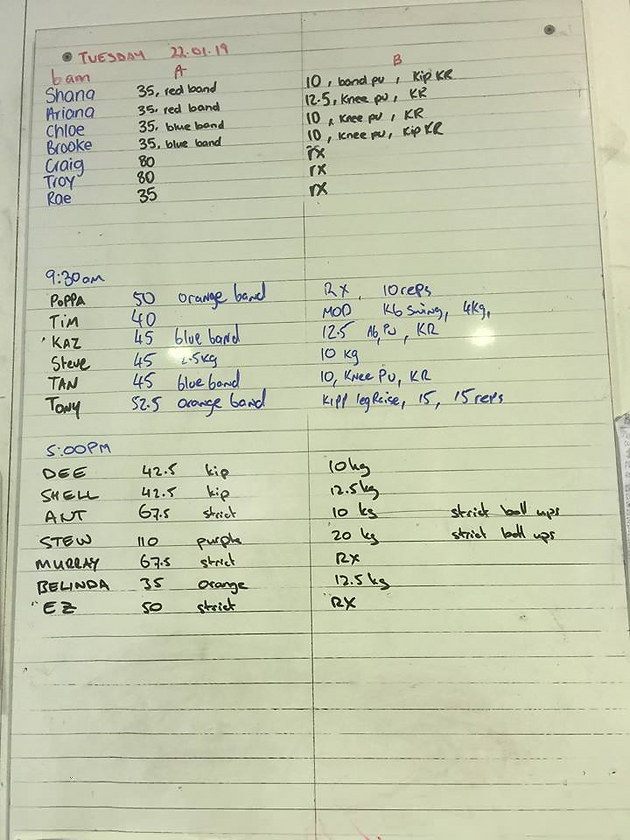 TUESDAY 22.01.19
6am A B
Shana 35, red band 10, band pu, Kip KR
Ariana 35, red band 12.5, Knee pu, KR
Chloe 35, blue band 10, Knee pu, KR
Brooke 35, blue band 10, Knee pu, Kip KR
Craig 80 rx
Troy 80 rx
Rae 35 rx
9:30am
POPPA 50 orange band RX, 10 reps
Tim 40 MOD Kb Swing, 4kg,
KAZ 45 blue band 12.5 Ab, PU, KR
Steve 45 2.5kg 10 kg
TAN 45 blue band 10, Knee PU, KR
Tony 52.5 orange band Kipp leg Reise, 15, 15 reps
5:00PM
DEE 42.5 kip 10kg
SHELL 42.5 kip 12.5kg
ANT 67.5 strict 10 kg strict ball ups
STEW 110 purple 20 kg strict ball ups
MURRAY 67.5 strict RX
BELINDA 35 orange 12.5 kg
"EZ 50 strict RX